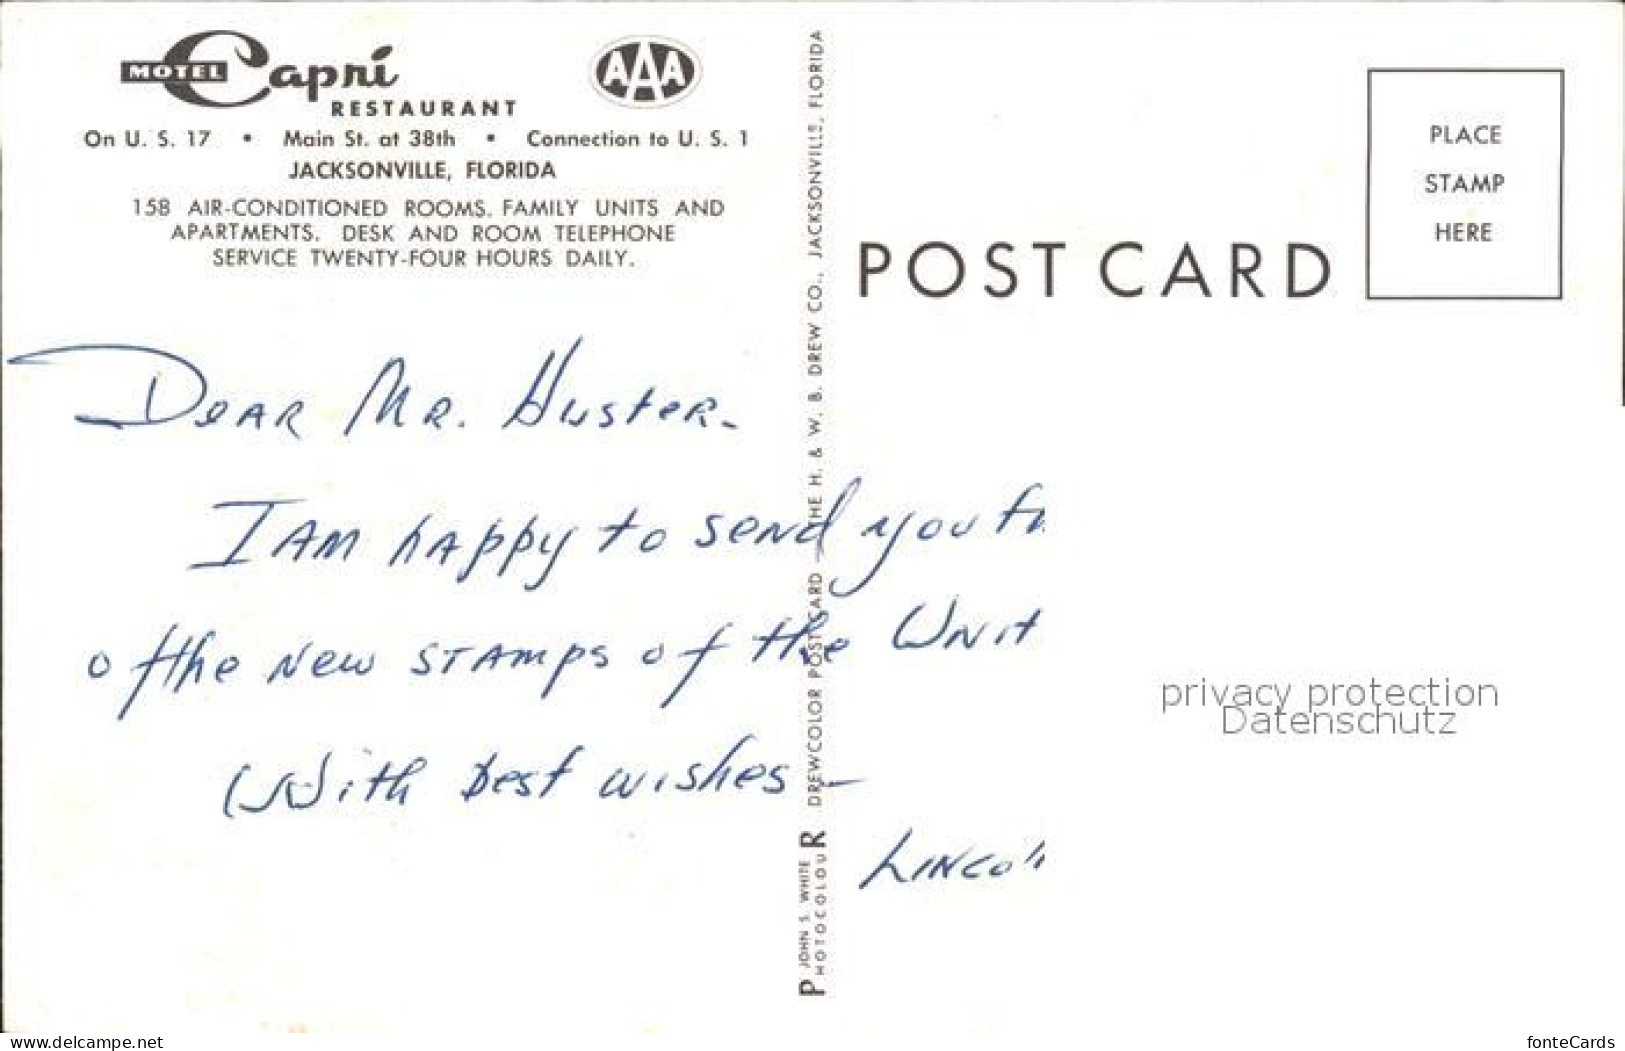 MOTEL Capri
RESTAURANT
AAA
On U. S. 17 • Main St. at 38th • Connection to U. S. 1
JACKSONVILLE, FLORIDA
158 AIR-CONDITIONED ROOMS. FAMILY UNITS AND
APARTMENTS. DESK AND ROOM TELEPHONE
SERVICE TWENTY-FOUR HOURS DAILY.
Dear Mr. Huster-
I am happy to send you
of the new stamps of the Unit
With best wishes -
Lincol
P JOHN S. WHITE
HOTOCOLOUR DREWCOLOR POST CARD — THE H. & W. B. DREW CO., JACKSONVILLE, FLORIDA
POST CARD
PLACE
STAMP
HERE
privacy protection
Datenschutz
www.delcampe.net
fonteCards